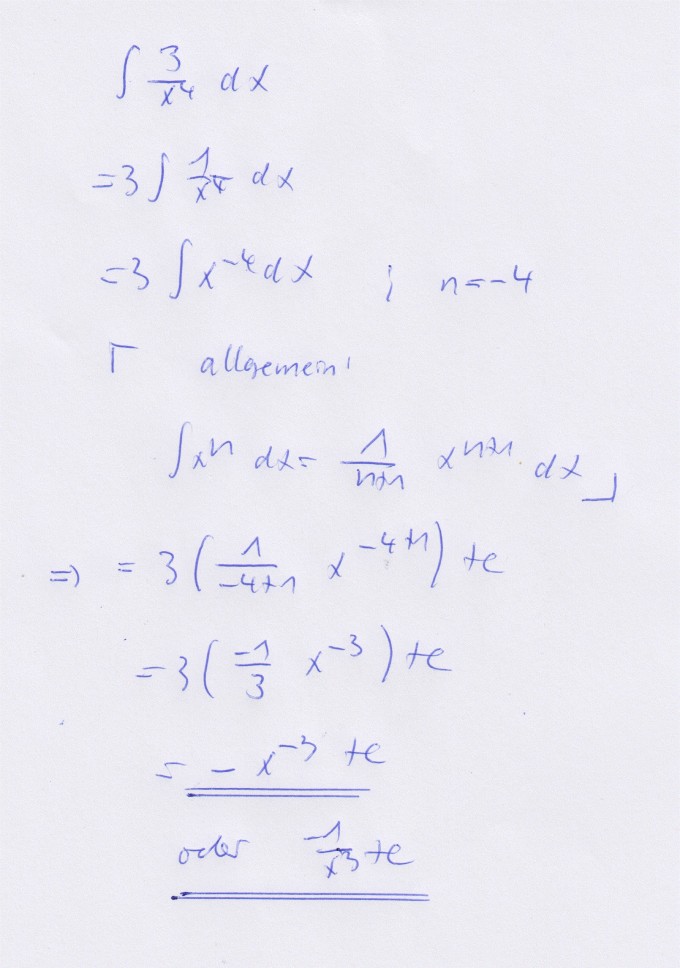 ∫ 3/x^4 dx
=3 ∫ 1/x^4 dx
=3 ∫ x^-4 dx ; n=-4
⌈ allgemein:
∫x^n dx = 1/(n+1) x^(n+1) . dx ⌋
=> = 3 ( 1/(-4+1) x^(-4+1) ) +c
= 3 ( -1/3 x^-3 ) +c
= - x^-3 +c
oder -1/x^3 +c